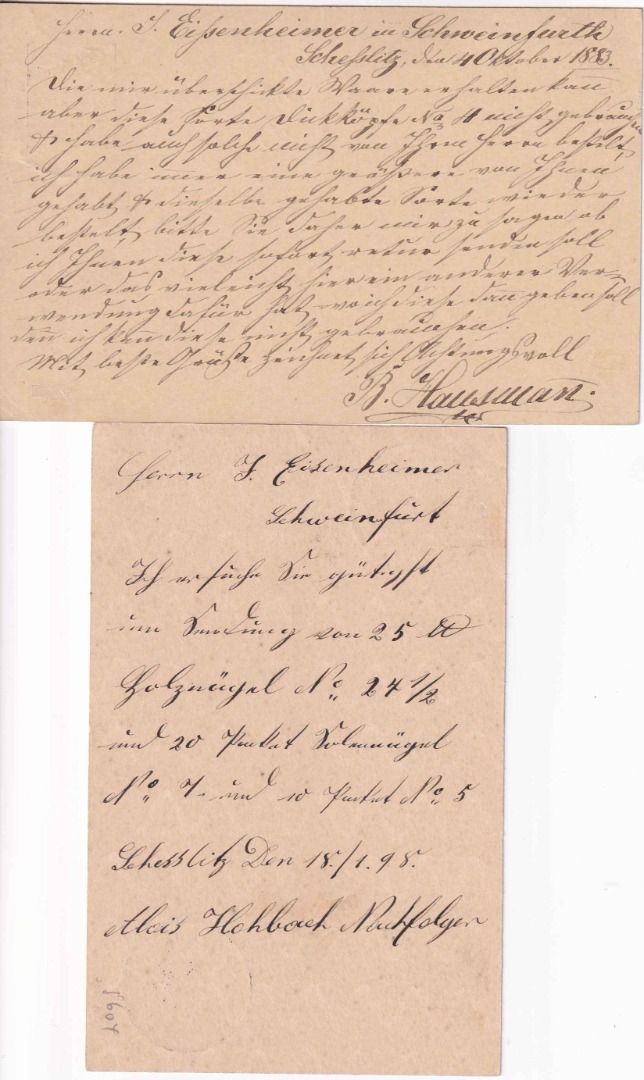 Herrn J. Eissenheimer in Schweinfurth
Schesslitz, den 4 Oktober 1883.
Die mir überschickte Waare erhalten kann
aber diese Sorte Dickköpfe No 4 nicht gebrauchen
& habe auch solche nicht von Ihrem Herrn bestelt,
ich habe imer eine größere von Ihnen
gehabt & dieselbe gehabte Sorte wieder
bestelt, bitte Sie daher mir zu sagen ob
ich Ihnen diese sofort retur senden soll
oder das vieleicht hier ein anderer Ver-
wendung dafür hat wo ich diese dan geben soll
den ich kann diese nicht gebrauchen.
Mit beste Grüße zeichnet sich Achtungsvoll
B. Hausman.
Herrn J. Eisenheimer
Schweinfurt
Ich ersuche Sie gütigst
um Sendung von 25 ℔
Holznägel No. 24 1/2
und 20 Packet Solennägel
No. 7. und 10 Packet No. 5
Schesslitz Den 18./1.98.
Alois Hohbach Nachfolger